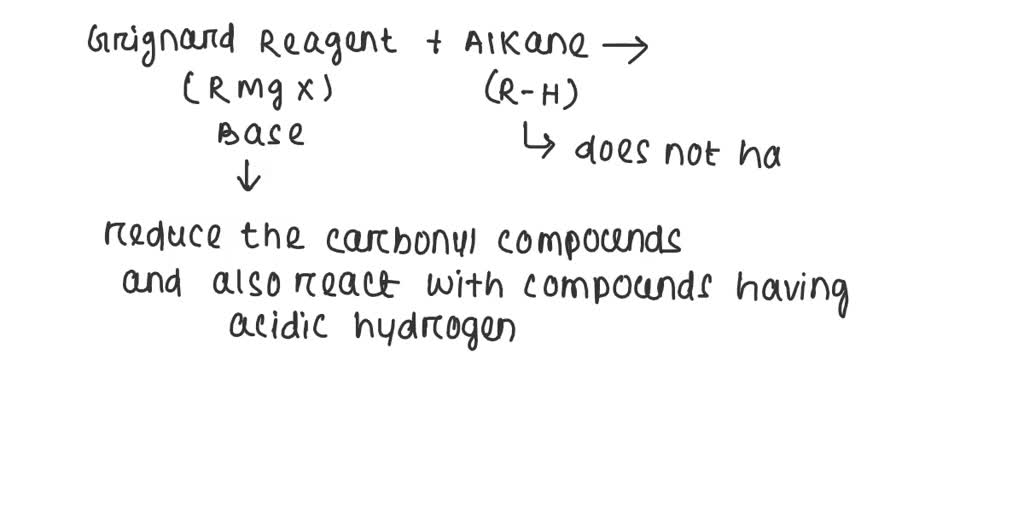 Grignard Reagent + Alkane →
(RMgX) (R-H)
Base ↳ does not ha
↓
reduce the carbonyl compounds
and also react with compounds having
acidic hydrogen